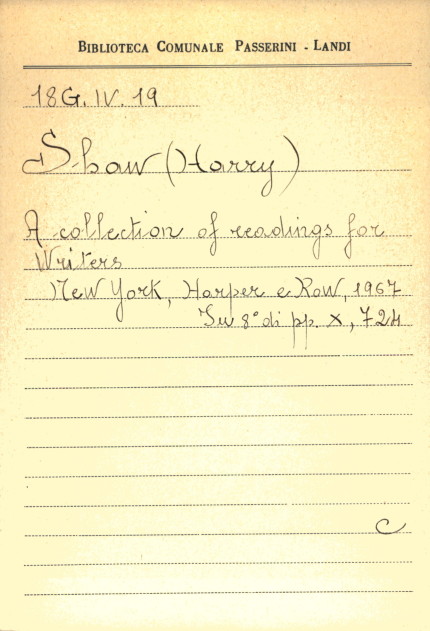 BIBLIOTECA COMUNALE PASSERINI - LANDI
18G. IV. 19
Shaw (Harry)
A collection of readings for
Writers
New York, Harper e Row, 1967
In 8° di pp. X, 724
C